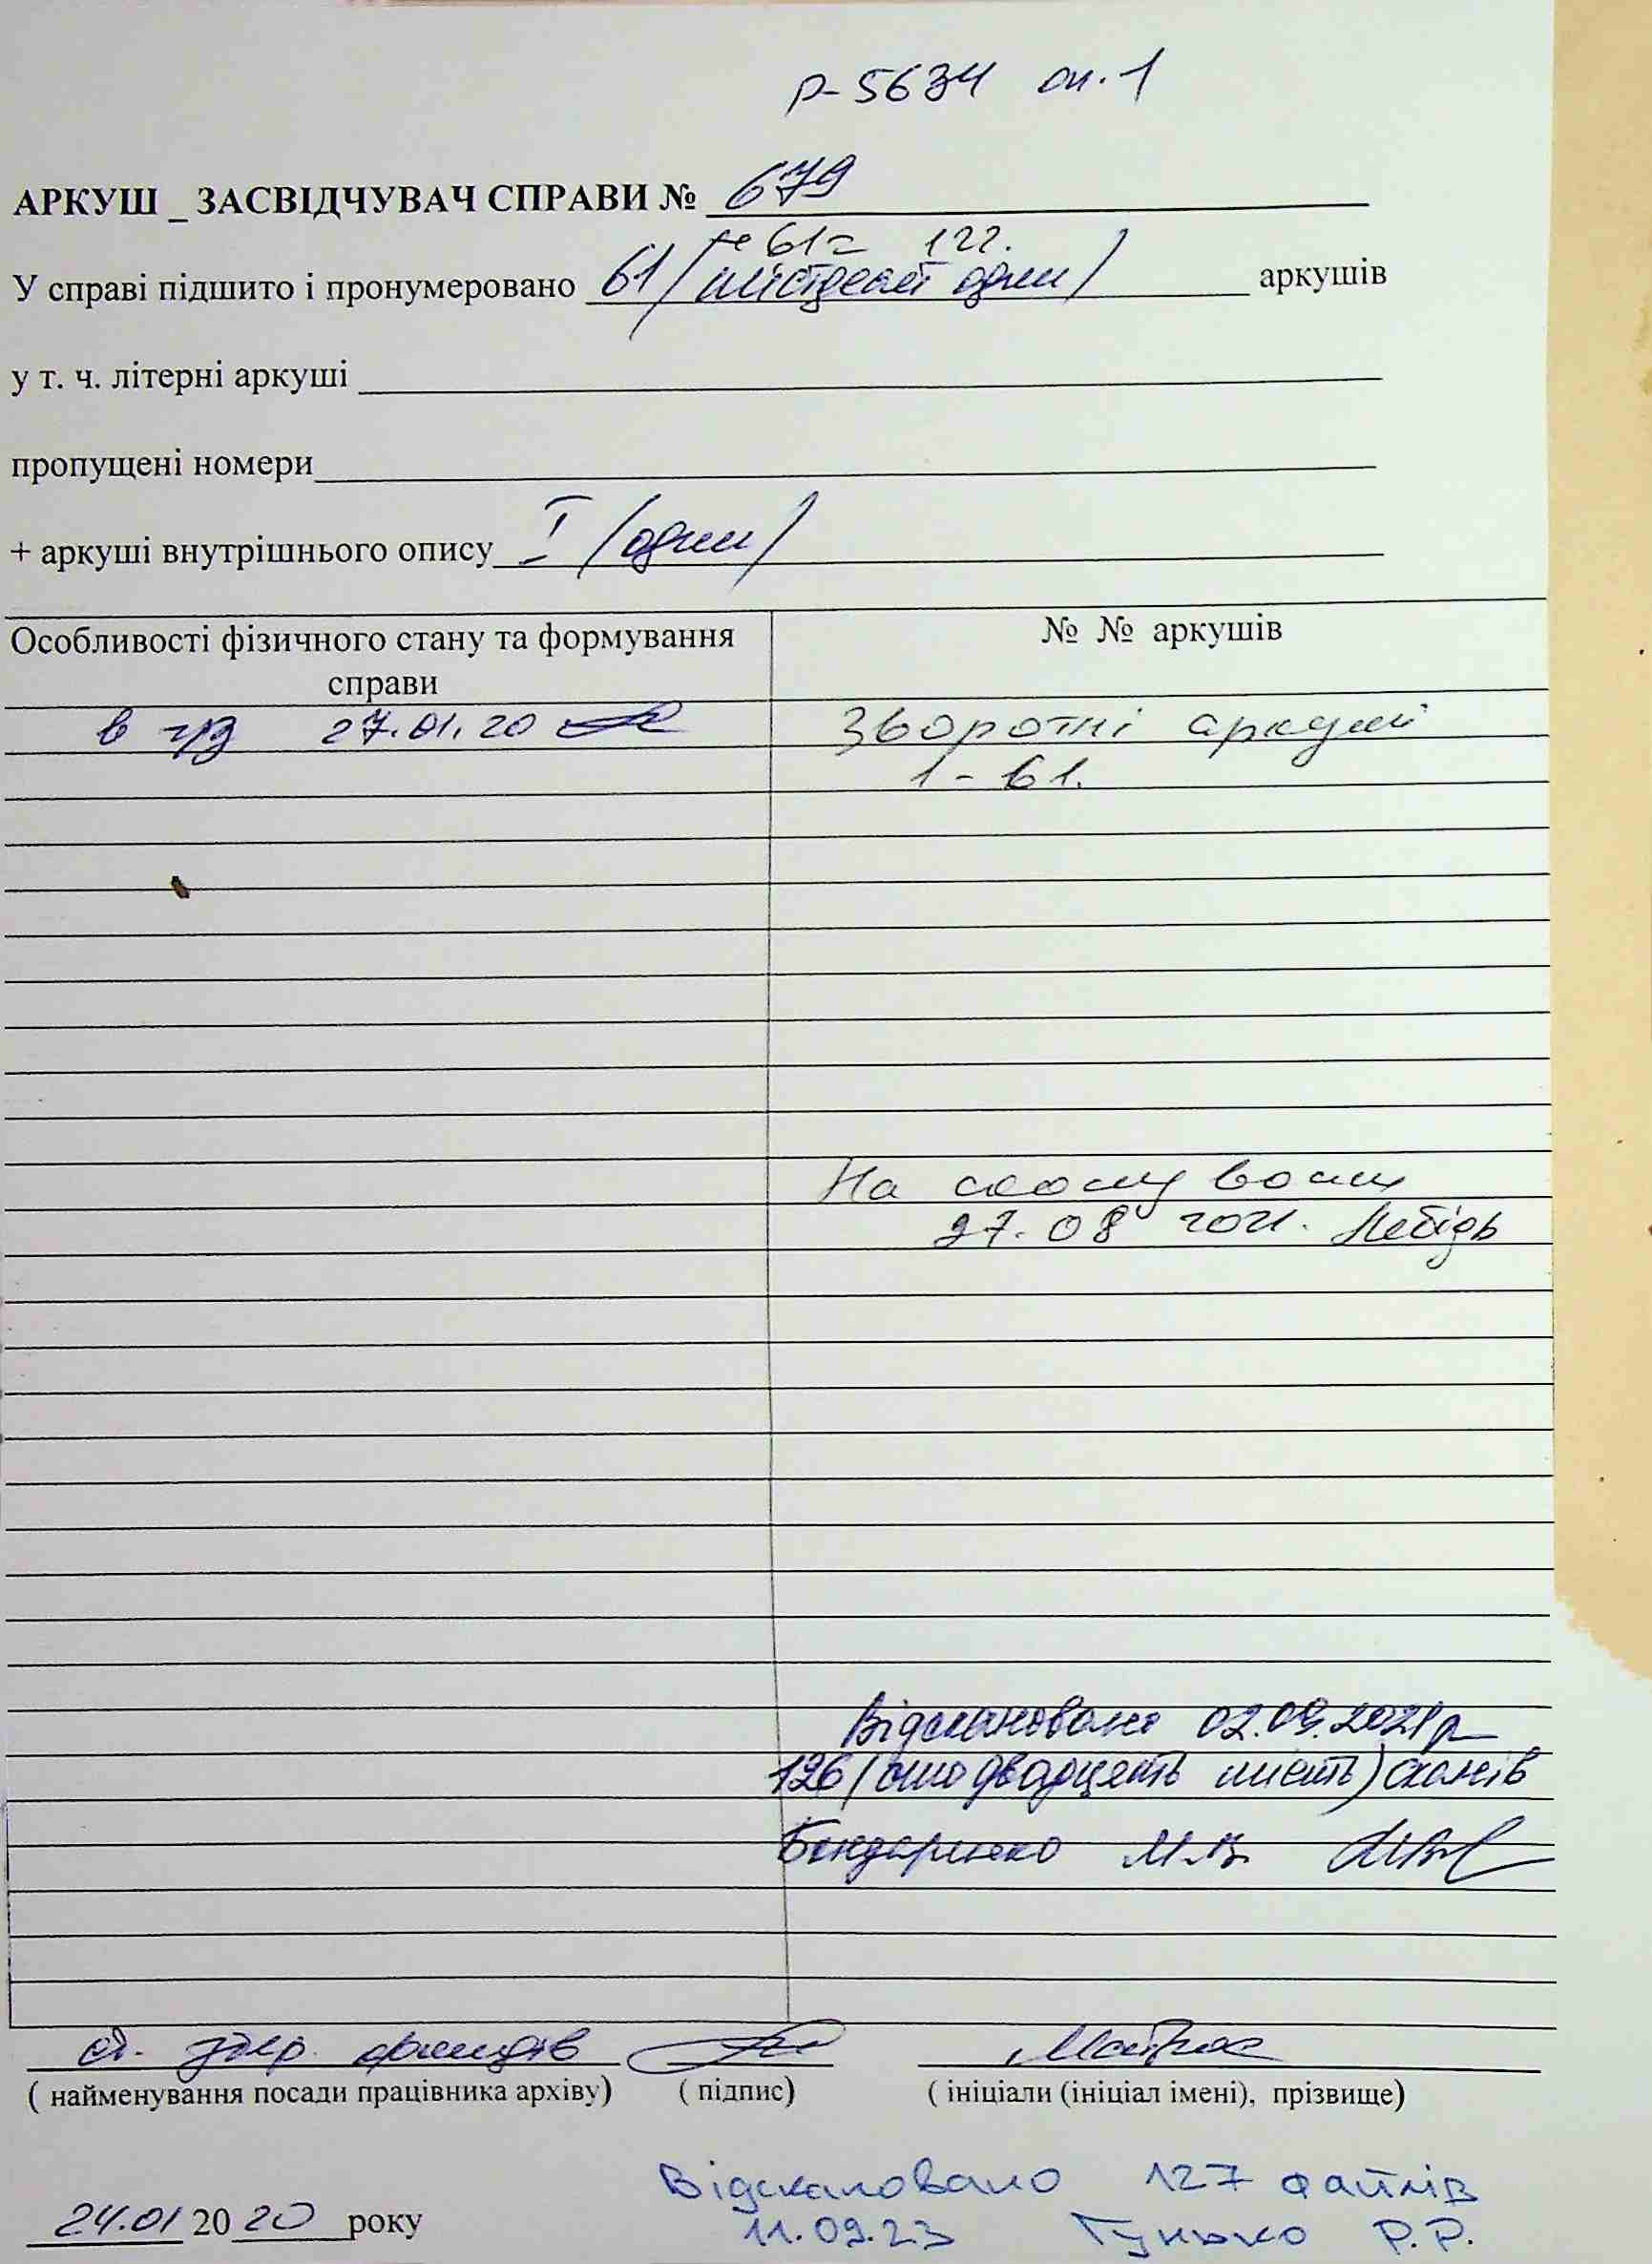 Р-5634 оп. 1
АРКУШ _ ЗАСВІДЧУВАЧ СПРАВИ № 679
+ 61 = 122.
У справі підшито і пронумеровано 61 /шістдесят один/ аркушів
у т. ч. літерні аркуші
пропущені номери
+ аркуші внутрішнього опису I /один/
Особливості фізичного стану та формування справи
№ № аркушів
в 27.01.20
Зворотні аркуші
1 - 61.
На
27.08 2021. Лебідь
Відскановано 02.09.2021р
126 (сто двадцять шість) сканів
Бондаренко М.В.
ст. фондів
( найменування посади працівника архіву) ( підпис) ( ініціали (ініціал імені), прізвище)
Відскановано 127 файлів
24.01 20 20 року
11.09.23 Гунько Р.Р.